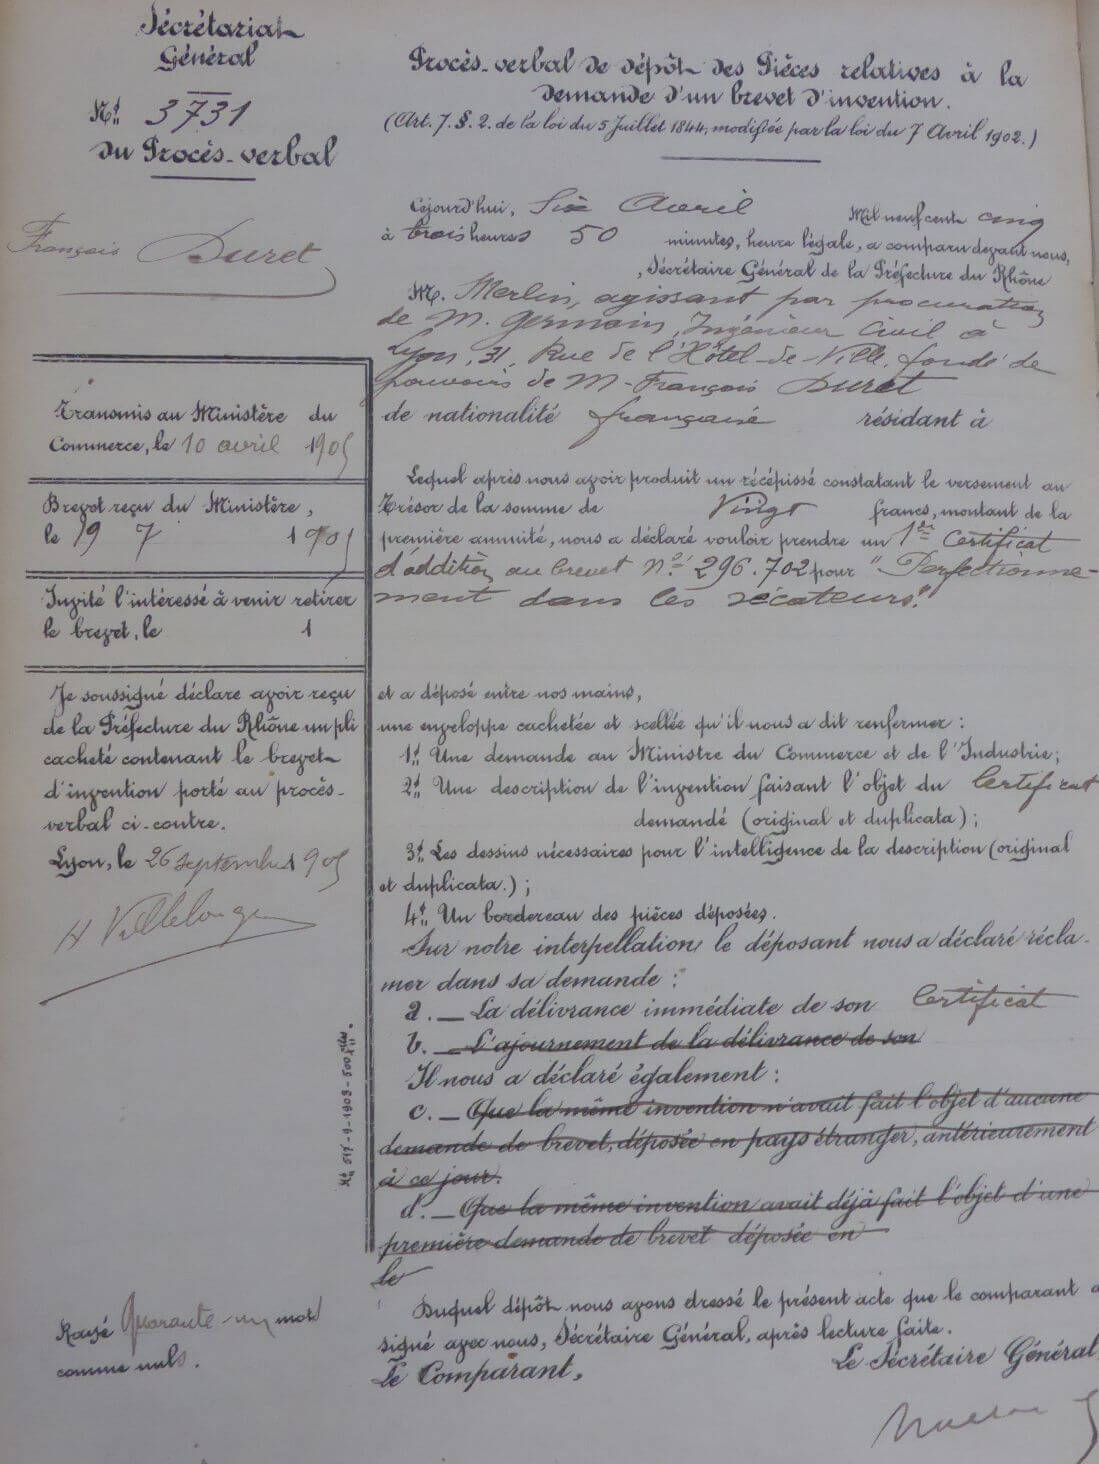 Secrétariat
Général
N° 3731
du Procès-verbal
François Duret
Transmis au Ministère du
Commerce, le 10 avril 1905
Brevet reçu du Ministère,
le 19 7 1905
Invité l'intéressé à venir retirer
le brevet, le 1
Je soussigné déclare avoir reçu
de la Préfecture du Rhône un pli
cacheté contenant le brevet
d'invention porté au procès-
verbal ci-contre.
Lyon, le 26 septembre 1905
Rayé Quarante-un mots
comme nuls.
Procès-verbal de dépôt des Pièces relatives à la
demande d'un brevet d'invention.
(Art. 7. §. 2. de la loi du 5 Juillet 1844, modifiée par la loi du 7 Avril 1902.)
Cejourd'hui, Six Avril Mil neuf cent cinq
à trois heures 50 minutes, heure légale, a comparu devant nous,
, Secrétaire Général de la Préfecture du Rhône
M. Merlin, agissant par procuration
de M. Germain, Ingénieur Civil à
Lyon, 31, Rue de l'Hôtel-de-Ville, fondé de
pouvoirs de M- François Duret
de nationalité française résidant à
Lequel après nous avoir produit un récépissé constatant le versement au
Trésor de la somme de Vingt francs, montant de la
première annuité, nous a déclaré vouloir prendre un 1er Certificat
d'addition au brevet N° 296.702 pour "Perfectionne-
ment dans les sécateurs."
et a déposé entre nos mains,
une enveloppe cachetée et scellée qu'il nous a dit renfermer :
1° Une demande au Ministre du Commerce et de l'Industrie ;
2° Une description de l'invention faisant l'objet du Certificat
demandé (original et duplicata) ;
3° Les dessins nécessaires pour l'intelligence de la description (original
et duplicata.) ;
4° Un bordereau des pièces déposées.
Sur notre interpellation, le déposant nous a déclaré récla-
mer dans sa demande :
a. — La délivrance immédiate de son Certificat
b. — L'ajournement de la délivrance de son
Il nous a déclaré également :
c. — Que la même invention n'avait fait l'objet d'aucune
demande de brevet, déposée en pays étranger, antérieurement
à ce jour.
d. — Que la même invention avait déjà fait l'objet d'une
première demande de brevet déposée en
le
Duquel dépôt nous avons dressé le présent acte que le comparant a
signé avec nous, Secrétaire Général, après lecture faite.
Le Comparant, Le Secrétaire Général